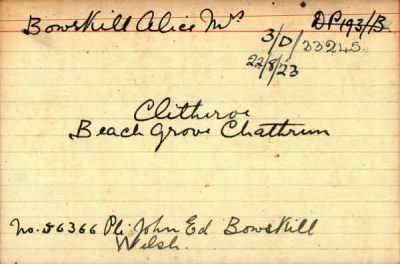 Bowskill Alice Mrs
DP193/B
3/D/33245
22/8/23
Clitheroe
Beach Grove Chathrum
No. 56366 Pte John Ed Bowskill
Welsh.